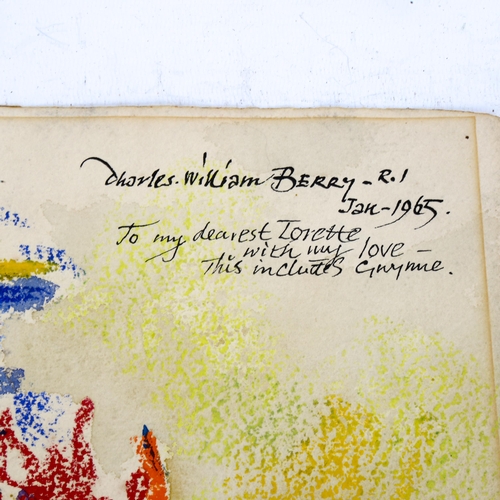 Charles. William BERRy - R.I
Jan - 1965.
To my dearest Iorette
with my love -
This includes Gwynne.